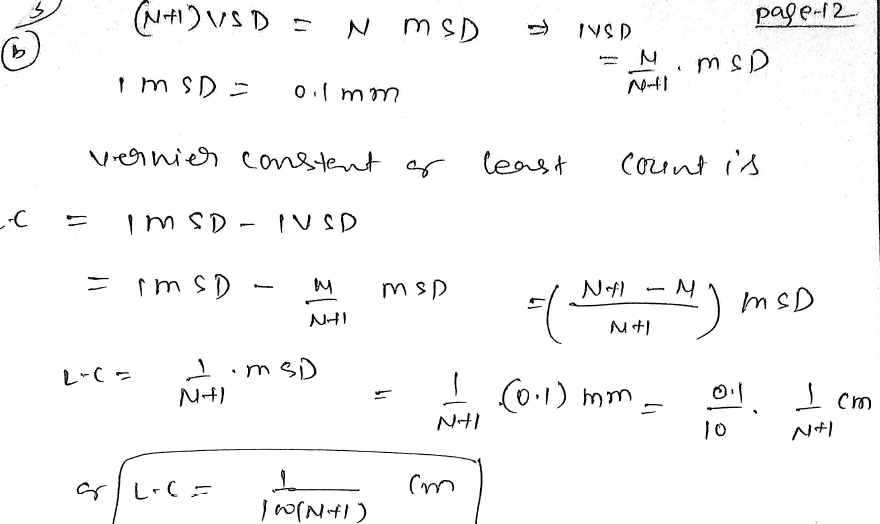 page-12
(N+1) VSD = N MSD ⇒ 1VSD
(b)
= N/N+1 . MSD
1 MSD = 0.1 mm
vernier constant or least count is
L.C = 1MSD - 1VSD
= 1MSD - N/N+1 MSD = (N+1 - N / N+1) MSD
L.C = 1/N+1 . MSD = 1/N+1 (0.1) mm = 0.1/10 . 1/N+1 cm
or L.C = 1/100(N+1) cm